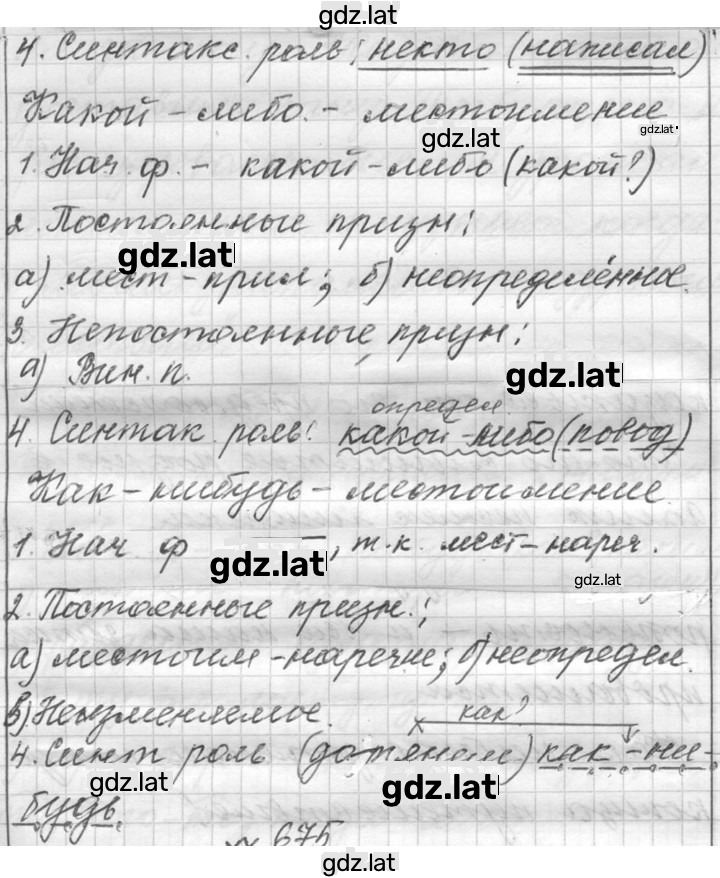 gdz.lat
4. Синтакс. роль: некто (написал)
Какой-либо. - местоимение
gdz.lat
gdz.lat
1. Нач. ф. - какой-либо (какой?)
2. Постоянные призн:
gdz.lat
а) мест-прил; б) неопределённое.
3. Непостоянные призн:
а) Вин. п.
gdz.lat
определ.
4. Синтак. роль: какой-либо (повод)
Как-нибудь - местоимение.
1. Нач. ф –, т.к. мест-нареч.
gdz.lat
gdz.lat
2. Постоянные призн.:
а) местоим-наречие; б) неопредел.
3) Неизменяемое.
как?
4. Синт роль (дотянем) как-ни-
gdz.lat
gdz.lat
будь.
№ 675
gdz.lat